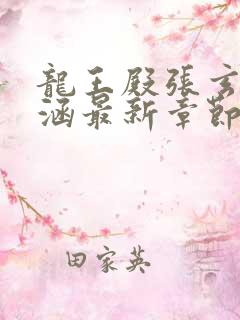 龍王殿張玄
涵最新章節
田家英